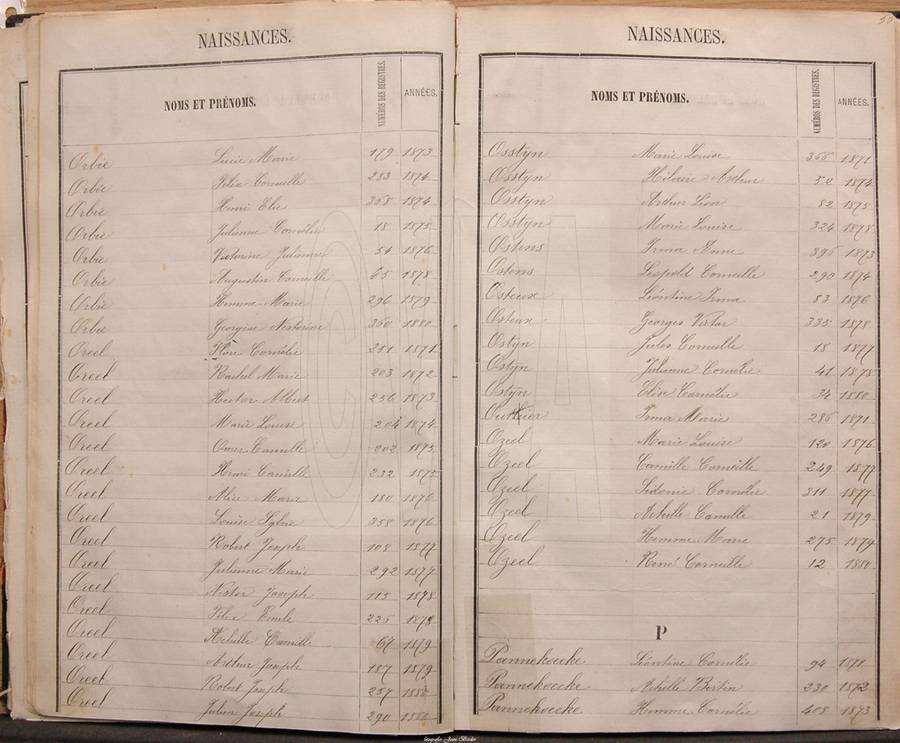 NAISSANCES.
NOMS ET PRÉNOMS. NUMÉROS DES REGISTRES. ANNÉES.
Orbie Lucie Marie 179 1873
Orbie Félix Corneille 283 1874
Orbie Henri Elie 368 1874
Orbie Julienne Cornélie 18 1875
Orbie Victorine Julienne 54 1876
Orbie Augustin Corneille 65 1878
Orbie Hemma Marie 296 1879
Orbie Georgine Nestorine 360 1880
Oreel Flore Cornélie 251 1871
Oreel Rachel Marie 203 1872
Oreel Hector Albert 256 1873
Oreel Marie Louise 204 1874
Oreel Omer Camille 202 1875
Oreel Henri Camille 232 1875
Oreel Alice Marie 180 1876
Oreel Louise Sylvie 358 1876
Oreel Robert Joseph 108 1877
Oreel Julienne Marie 292 1877
Oreel Nestor Joseph 115 1878
Oreel Félix Emile 226 1878
Oreel Achille Camille 67 1879
Oreel Arthur Joseph 187 1879
Oreel Robert Joseph 257 1880
Oreel Julien Joseph 290 1880
NAISSANCES.
NOMS ET PRÉNOMS. NUMÉROS DES REGISTRES. ANNÉES.
Osstyn Marie Louise 366 1871
Osstyn Hilaire Arthur 52 1874
Osstyn Arthur Léon 82 1875
Osstyn Marie Louise 324 1878
Ostens Irma Anne 396 1873
Ostens Léopold Corneille 290 1874
Osteux Léontine Irma 83 1876
Osteux Georges Victor 335 1878
Ostyn Jules Corneille 18 1877
Ostyn Julienne Cornélie 41 1878
Ostyn Elise Cornélie 34 1880
Irma Marie 286 1871
Ozeel Marie Louise 120 1876
Ozeel Camille Corneille 249 1877
Ozeel Sidonie Cornélie 311 1877
Ozeel Achille Camille 21 1879
Ozeel Hemma Marie 275 1879
Ozeel René Corneille 12 1880
P
Pannekoecke Léontine Cornélie 94 1871
Pannekoecke Achille Bertin 230 1872
Pannekoecke Hemma Cornélie 408 1873